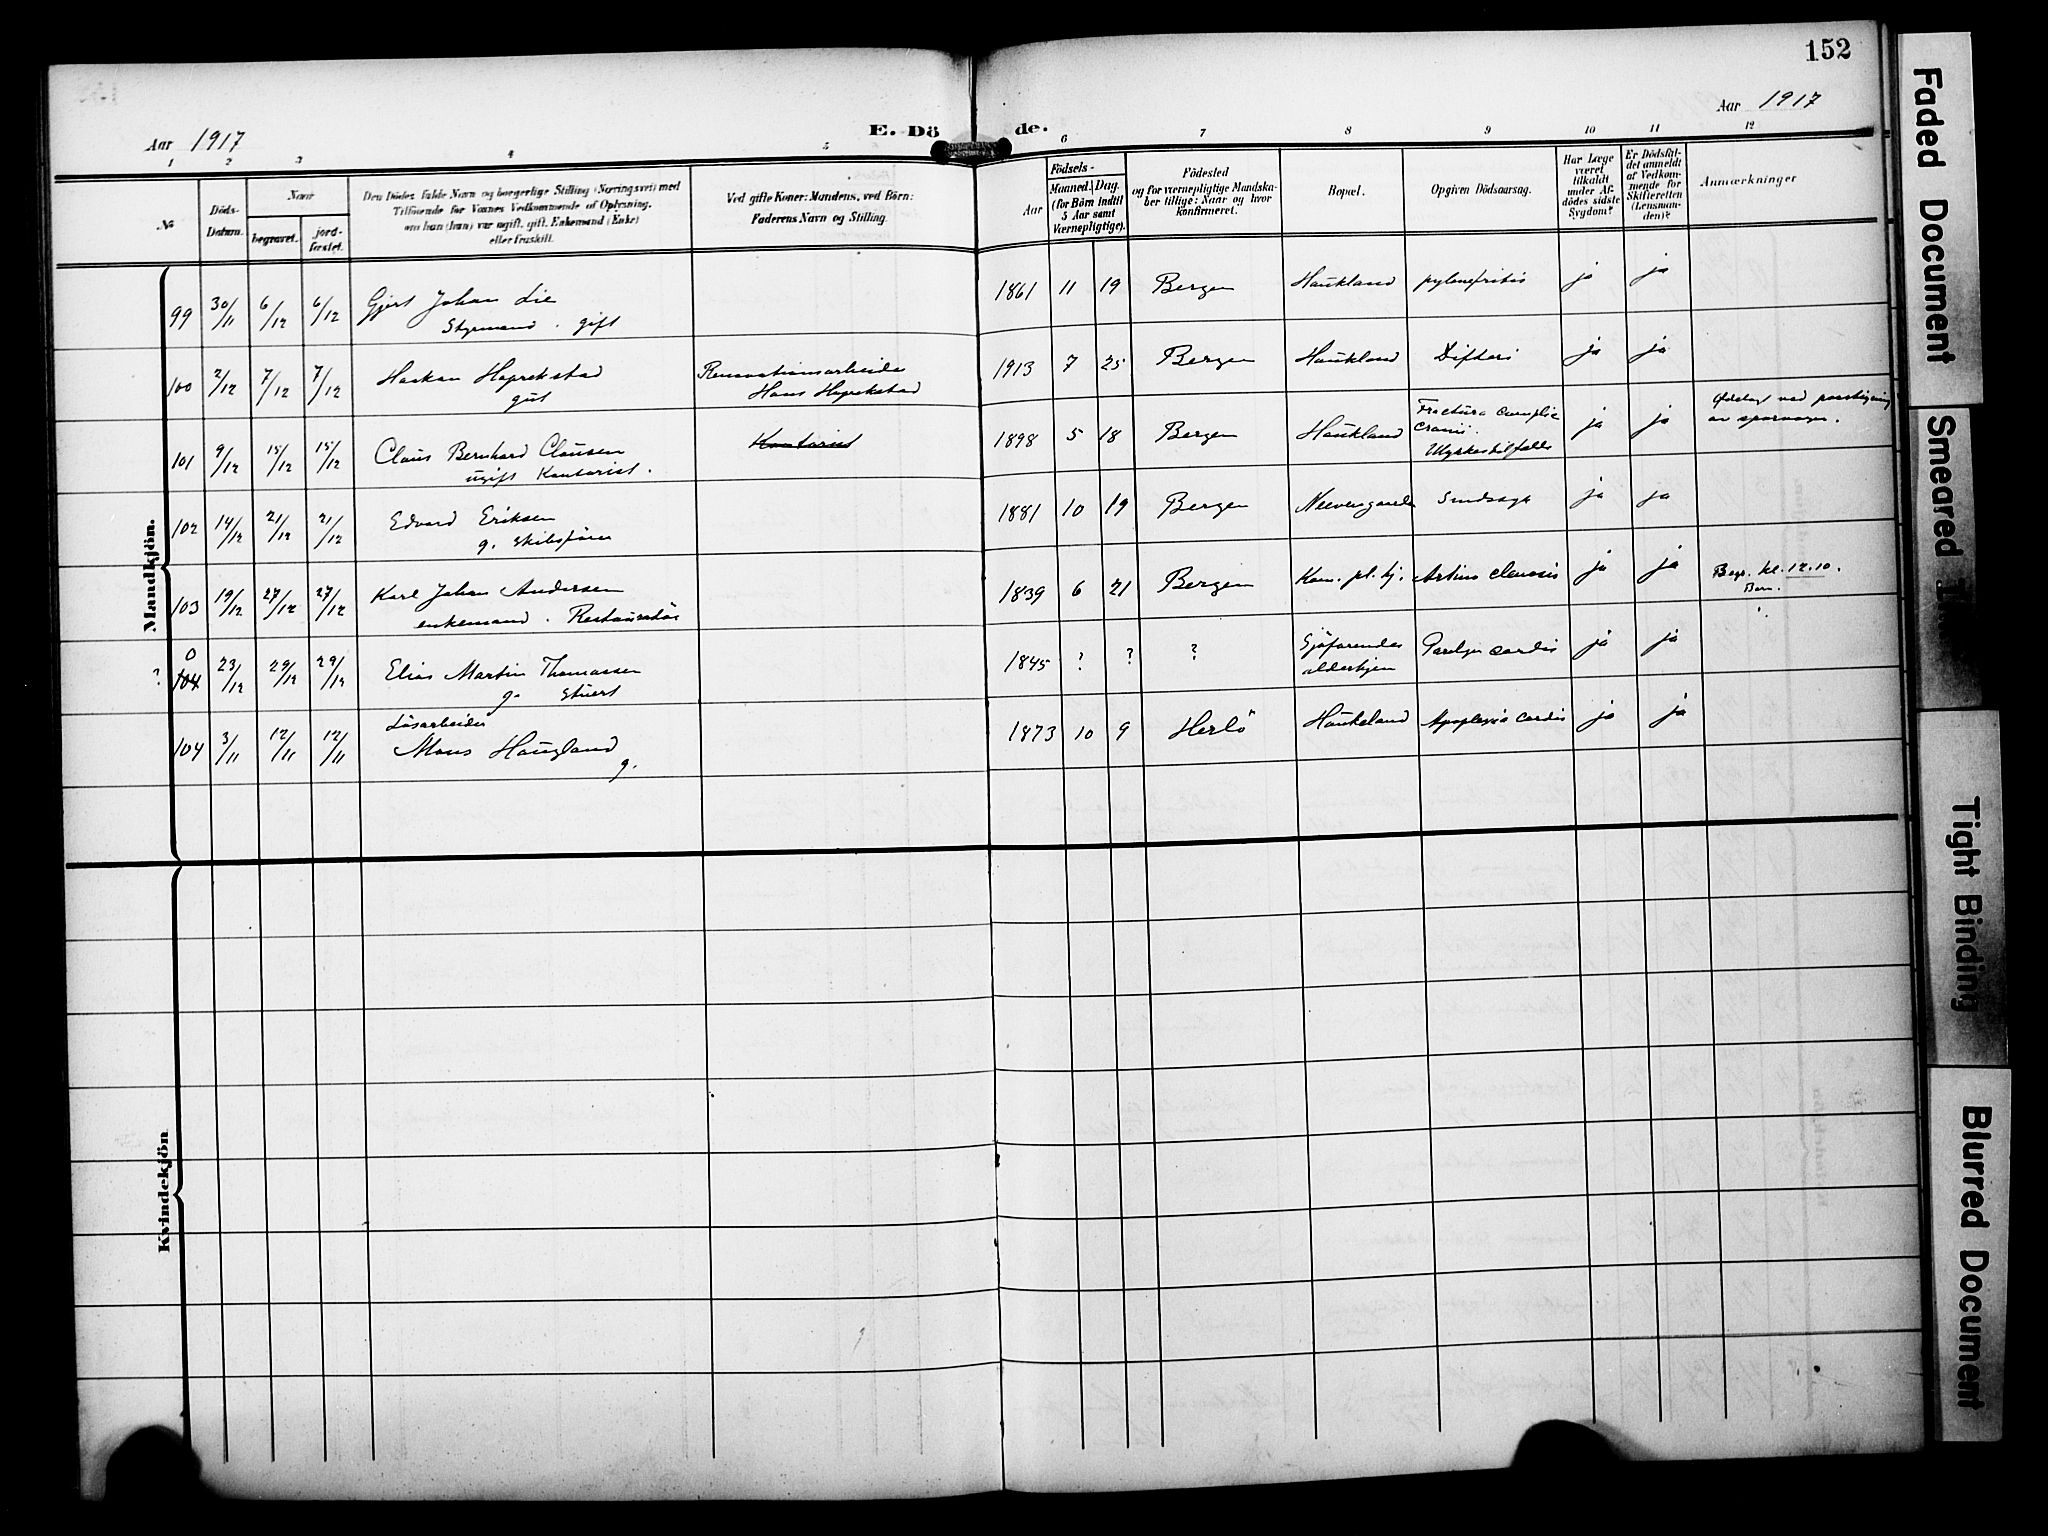 152
Aar 1917
E. Döde.
Aar 1917
1 2 3 4 5 6 7 8 9 10 11 12
№
Döds-Datum.
Naar
begravet.
jord-fæstet.
Den Dödes fulde Navn og borgerlige Stilling (Næringsvei) med
Tilföiende for Voxnes Vedkommende af Oplysning,
om han (hun) var ugift, gift, Enkemand (Enke)
eller fraskilt.
Ved gifte Koner: Mandens, ved Börn:
Faderens Navn og Stilling.
Födsels-
Aar
Maaned. Dag.
(for Börn indtil
5 Aar samt
Værnepligtige).
Födested
og for værnepligtige Mandska-
ber tillige: Naar og hvor
konfirmeret.
Bopæl.
Opgiven Dödsaarsag.
Har Læge
været
tilkaldt
under Af-
dödes sidste
Sygdom?
Er Dödsfal-
det anmeldt
af Vedkom-
mende for
Skifteretten
(Lensman-
den)?
Anmærkninger
Mandkjön.
99 30/11 6/12 6/12 Gjert Johan Lie 1861 11 19 Bergen Haukland pylonefritis ja ja
Styrmand. gift
100 2/12 7/12 7/12 Haakon Hoprekstad Renovationsarbeider 1913 7 25 Bergen Haukland Difteri ja ja
gut Hans Hoprekstad
101 9/12 15/12 15/12 Claus Bernhard Clausen Kontorist 1898 5 18 Bergen Haukland Fractura complic cranii. Ulykkestilfælde ja ja Ødelagt ved paastigning av sporvogn.
ugift Kontorist.
102 14/12 21/12 21/12 Edvard Eriksen 1881 10 19 Bergen Neevengaarden Sindssyk ja ja
g. Skibsfører
103 19/12 27/12 27/12 Karl Johan Andersen 1839 6 21 Bergen Kom. pl. hj. ja ja Begr. kl. 12.10.
enkemand. Restauratör
? 0 104 23/12 29/12 29/12 Elias Martin Thomassen 1845 ? ? ? Sjöfarendes alderhjem Paralyse cordis ja ja
g. Stuert
Lösarbeider
104 3/11 12/11 12/11 Mons Haugland 1873 10 9 Herlö Haukeland Apoplexia cordis ja ja
g.
Kvindekjön
Faded Document
Smeared
Tight Binding
Blurred Document